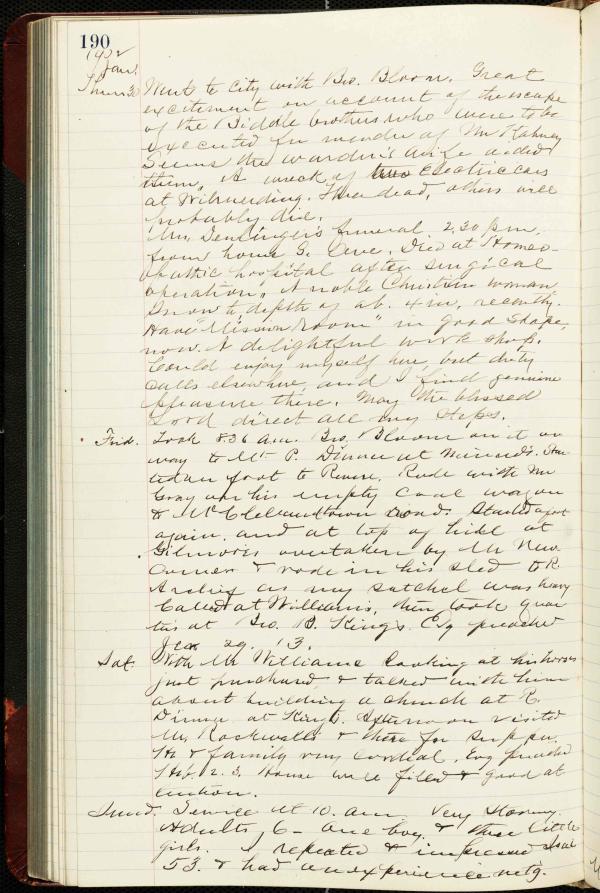 190
1902
Jan.
Thurs 30 Went to City with Bro. Bloom. Great
excitement on account of the escape
of the Biddle brothers who were to be
executed for murder of Mr Kahney
Seems the warden's wife aided
them. A wreck of two Electric cars
at Wilmerding. Three dead, others will
probably die.
Mrs. Denzinger's funeral 2.30 p.m.
from home G. Ave. Died at Homeo-
pathic hospital after surgical
operation. A noble Christian woman
Snow to depth of ab. 4 in. recently.
Have "Mission Room" in good shape,
now. A delightful work shop.
Could enjoy myself here, but duty
calls elsewhere and I find genuine
pleasure there. May the blessed
Lord direct all my steps.
Frid. Took 8.36 a.m. Bro. Bloom on it on
way to Mt P. Dinner at . Star-
ted on foot to Revere. Rode with Mr
Gray on his empty coal wagon
to McClellandtown road. Started afoot
again, and at top of hill at
Gilmores overtaken by Mr New-
comer & rode in his sled to R.
A relief as my satchel was heavy
Called at Williams, then took quar-
ters at Geo. B. King's. Evg preached
Jer. 29: 13.
Sat. With Mr Williams looking at his horses
just purchased & talked with him
about building a church at R.
Dinner at King's. Afternoon visited
Mr. Rockwells & there for supper.
He & family very cordial. Evg preached
Heb. 2. 3. House well filled & good at-
tention.
Sund. Service at 10. a.m. Very stormy.
Adults, 6 - one boy, & three little
girls. I repeated & impressed Isai
53. & had an experience mtg.